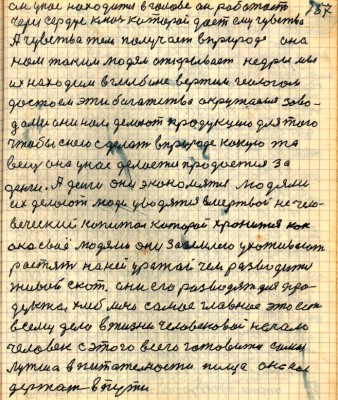 он у нас находится в голове он работает
через сердце к ним которой дает ему чувства
А чувства тем получает в природе она
нам таким людям открывает недры мы
их находим в глыбине вертим геологом
достаем эти богатства окружаем заво-
дами они нам делают продукцию для того
чтобы с него сделать в природе какую то
вещу она у нас делается продается за
деньги. А деньги они экономятся людями
их делают люди уводятся в мертвой не чело-
веческий капитал которой хронится как
око свое людями они за землею ухаживают
растят на ней урожай чем разводится
живой скот. они его разводят для про-
дукта, хлеб мясо самое главное это есть
всему дело в жизни человековой начало
человек с этого всего готовится самая
лутшая в питательности пища она нас
держит в пути